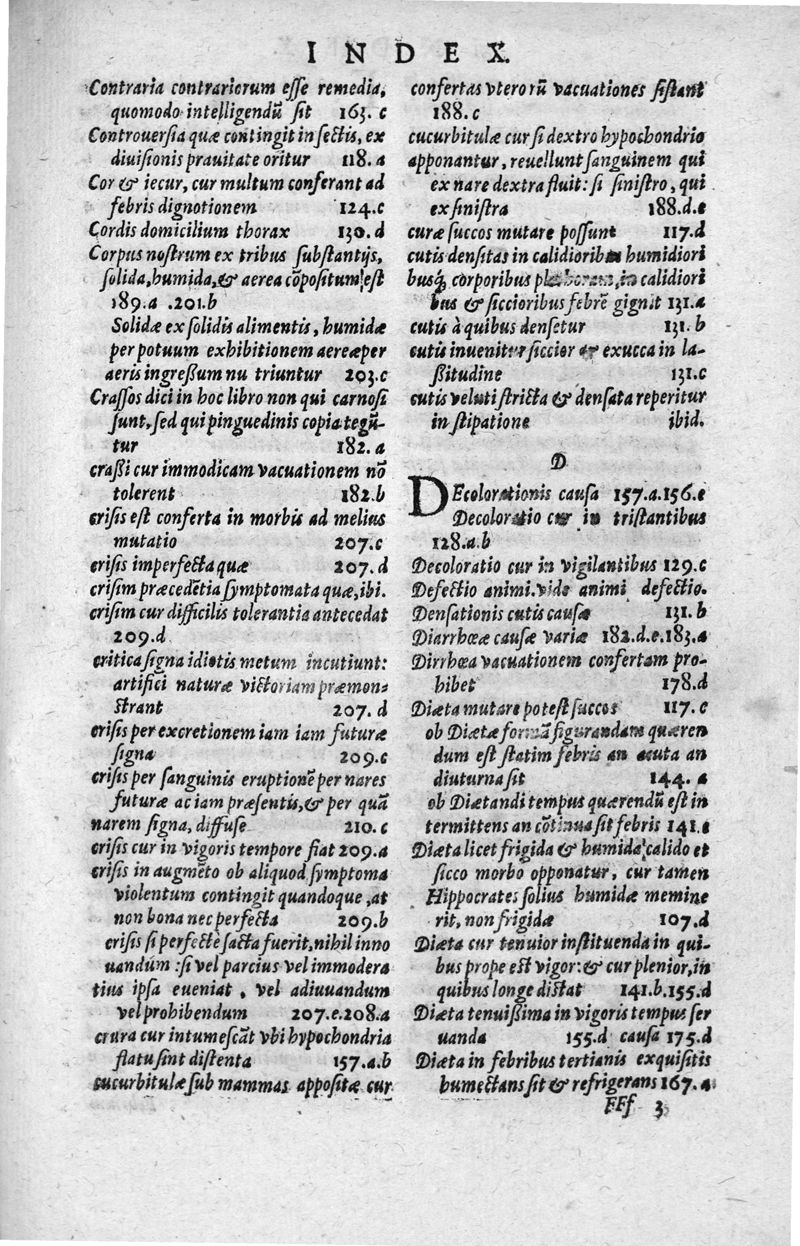 INDEX.
Contraria contrariorum esse remedia,
quomodo intelligendũ sit 163.c
Controuersia quæ contingit in sectis, ex
diuisionis prauitate oritur 118.a
Cor & iecur, cur multum conferant ad
febris dignotionem 124.c
Cordis domicilium thorax 130.d
Corpus nostrum ex tribus substantijs,
solida, humida, & aerea cõpositum est
189.a .201.b
Solidæ ex solidis alimentis, humidæ
per potuum exhibitionem aereæ per
aeris ingreßum nu triuntur 203.c
Crassos dici in hoc libro non qui carnosi
sunt, sed qui pinguedinis copia tegũ-
tur 182.a
craßi cur immodicam vacuationem nõ
tolerent 182.b
crisis est conferta in morbis ad melius
mutatio 207.c
crisis imperfecta quæ 207.d
crisim præcedẽtia symptomata quæ, ibi.
crisim cur difficilis tolerantia antecedat
209.d
critica signa idiotis metum incutiunt:
artifici naturæ victoriam præmons
strant 207.d
crisis per excretionem iam iam futuræ
signa 209.c
crisis per sanguinis eruptionẽ per nares
futuræ ac iam præsentis, & per quã
narem signa, diffuse 210.c
crisis cur in vigoris tempore fiat 209.a
crisis in augmẽto ob aliquod symptoma
violentum contingit quandoque, at
non bona nec perfecta 209.b
crisis si perfectè facta fuerit, nihil inno
uandum: si vel parcius vel immodera
tius ipsa eueniat, vel adiuuandum
vel prohibendum 207.e.208.a
crura cur intumescãt vbi hypochondria
flatu sint distenta 157.a.b
cucurbitulæ sub mammas appositæ cur
confertas vterorũ vacuationes sistant
188.c
cucurbitulæ cur si dextro hypochondrio
apponantur, reuellunt sanguinem qui
ex nare dextra fluit: si sinistro, qui
ex sinistra 188.d.e
curæ succos mutare possunt 117.d
cutis densitas in calidioribus humidiori
busq; corporibus in calidiori
bus & siccioribus febrẽ gignit 131.a
cutis à quibus densetur 131.b
cutis inuenitur siccior & exucca in la-
ßitudine 131.c
cutis veluti stricta & densata reperitur
in stipatione ibid.
D
DEcolorationis causa 157.a.156.e
Decoloratio cur in tristantibus
128.a.b
Decoloratio cur in vigilantibus 129.c
Defectio animi. vide animi defectio.
Densationis cutis causa 131.b
Diarrhœæ causæ variæ 182.d.e.183.a
Dirrhœa vacuationem confertam pro-
hibet 178.d
Diæta mutare potest succos 117.c
ob Diætæ formã figurandam quæren
dum est statim febris an acuta an
diuturna sit 144.a
ob Diætandi tempus quærendũ est in
termittens an cõtinua sit febris 141.e
Diæta licet frigida & humida calido et
sicco morbo opponatur, cur tamen
Hippocrates solius humidæ memine
rit, non frigidæ 107.d
Diæta cur tenuior instituenda in qui-
bus prope est vigor: & cur plenior, in
quibus longe distat 141.b.155.d
Diæta tenuißima in vigoris tempus ser
uanda 155.d causa 175.d
Diæta in febribus tertianis exquisitis
humectans sit & refrigerans 167.a
FFf 3